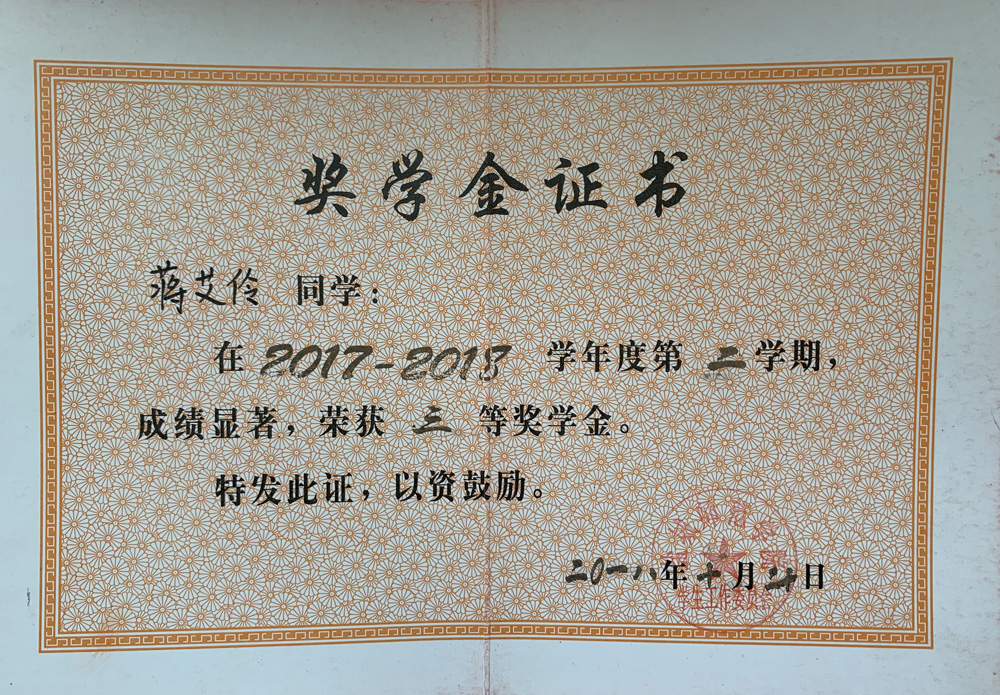 奖学金证书
蒋艾伶 同学：
在 2017-2018 学年度第 二 学期，
成绩显著，荣获 三 等奖学金。
特发此证，以资鼓励。
二〇一八年十月 日
学生工作委员会